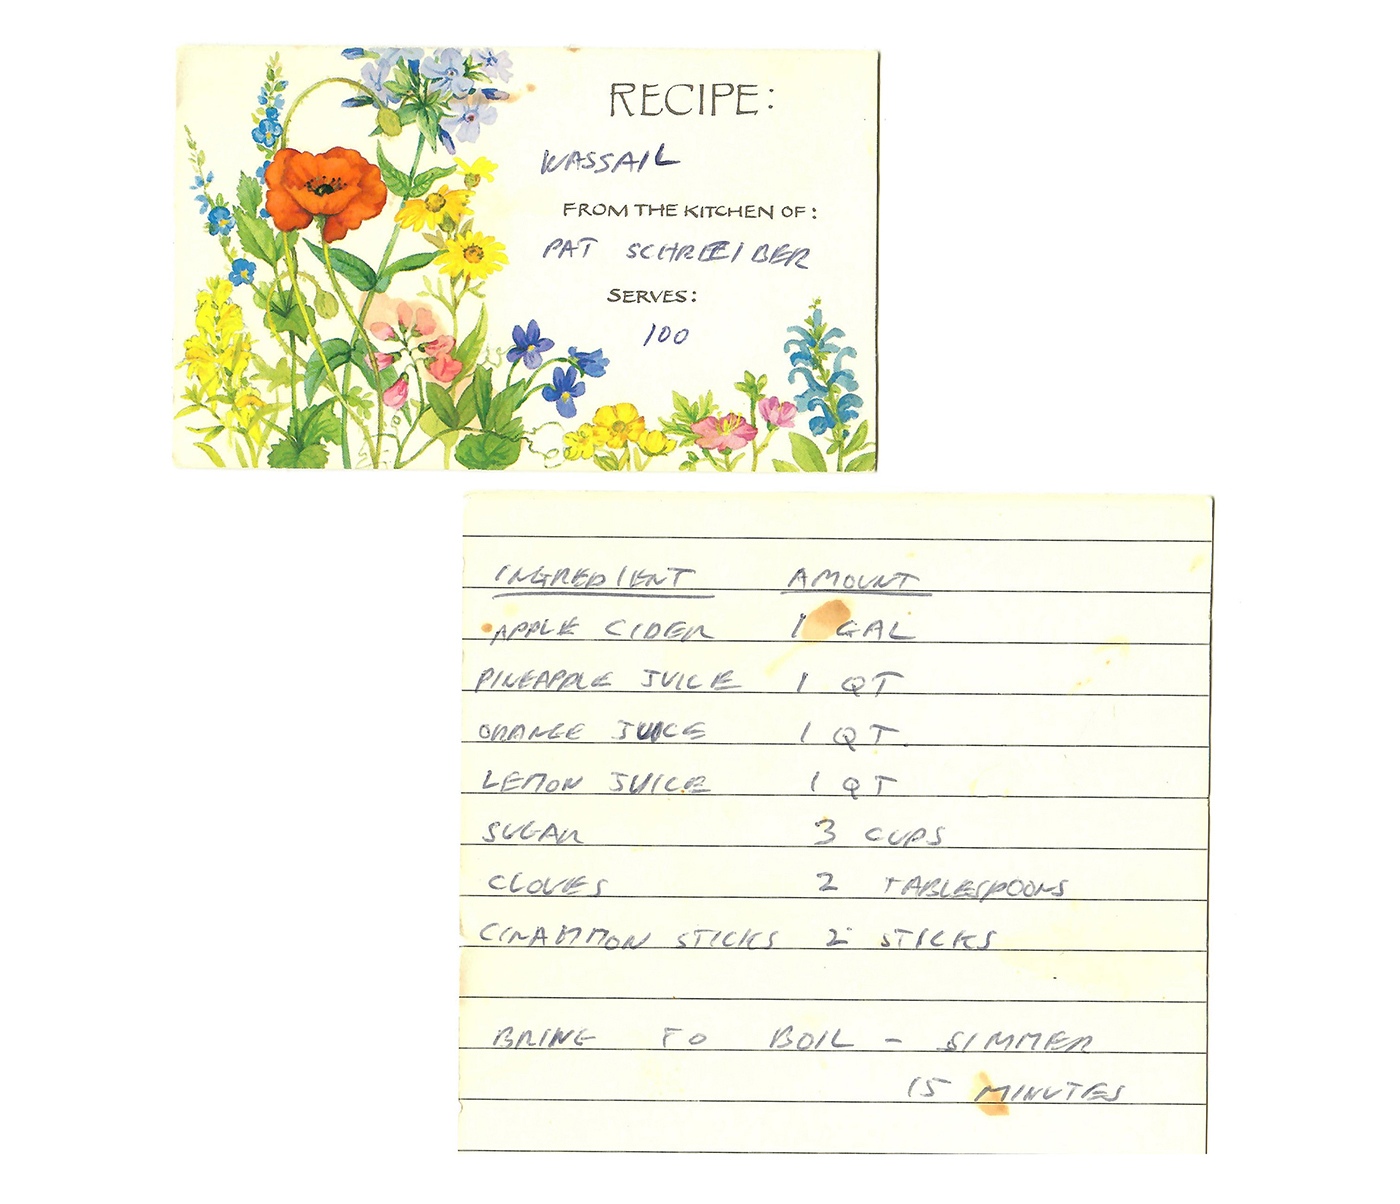 RECIPE:
WASSAIL
FROM THE KITCHEN OF:
PAT SCHREIBER
SERVES:
100
INGREDIENT AMOUNT
APPLE CIDER 1 GAL
PINEAPPLE JUICE 1 QT
ORANGE JUICE 1 QT.
LEMON JUICE 1 QT
SUGAR 3 CUPS
CLOVES 2 TABLESPOONS
CINAMMON STICKS 2 STICKS
BRING TO BOIL - SIMMER
15 MINUTES